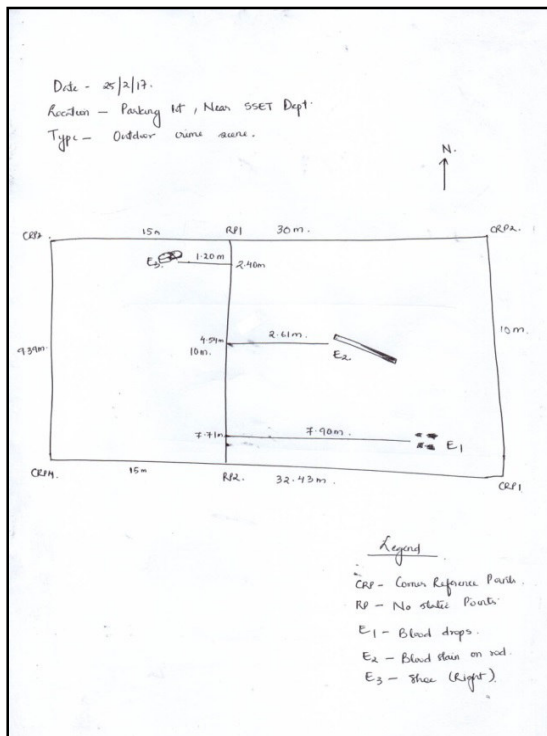 Date - 25/2/17.
Location - Parking lot, Near SSET Dept.
Type - Outdoor crime scene.
N.
CRP3 15m RP1 30m. CRP2
E3. 1.20m 2.40m
9.39m 4.59m 2.61m. 10m
10m. E2
7.71m 7.90m. E1
CRP4 15m RP2. 32.43m CRP1
Legend
CRP - Corner Reference Points.
RP - No static Points
E1 - Blood drops.
E2 - Blood stain on rod.
E3 - Shoe (Right).